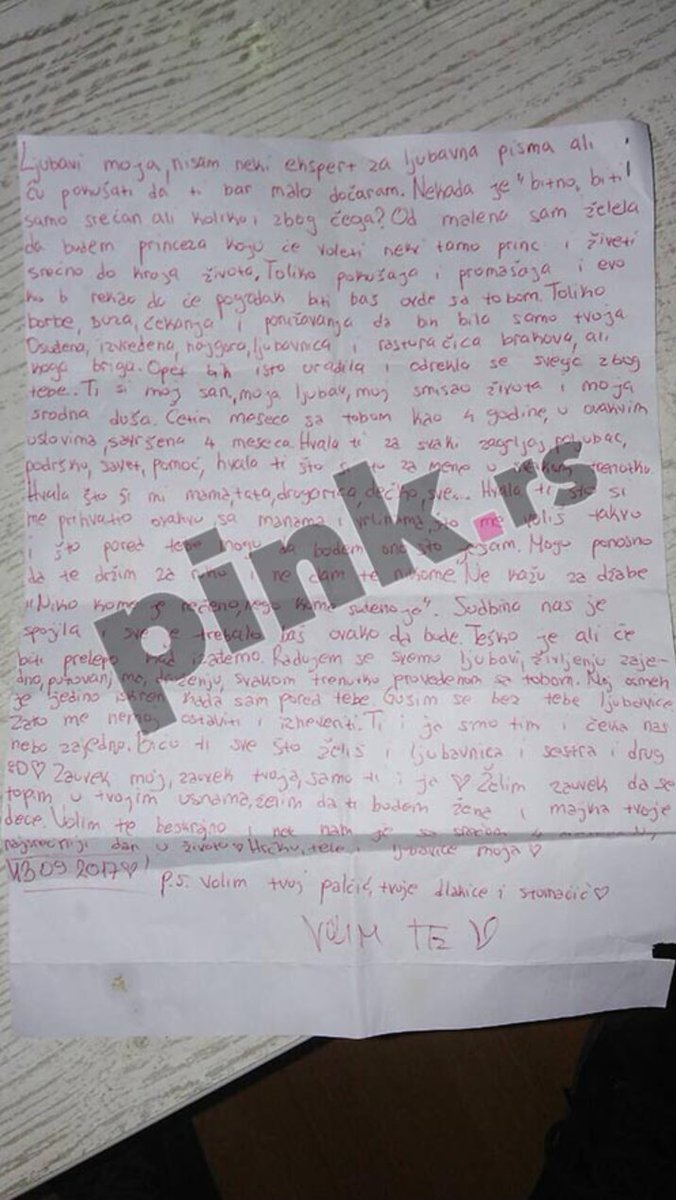 Ljubavi moja, nisam neki ekspert za ljubavna pisma ali
ću pokušati da ti bar malo dočaram. Nekada je "bitno, biti
samo srećan ali koliko i zbog čega? Od malena sam želela
da budem princeza koju će voleti neki tamo princ i živeti
srećno do kraja života. Toliko pokušaja i promašaja i evo
ko b rekao da će pogadak biti baš ovde sa tobom. Toliko
borbe, suza, čekanja i ponižavanja da bih bila samo tvoja
Osuđena, izvređena, najgora, ljubavnica i rasturačica brakova, ali
koga briga. Opet bih isto uradila i odrekla se svega zbog
tebe. Ti si moj san, moja ljubav, moj smisao života i moja
srodna duša. Četiri meseca sa tobom kao 4 godine, u ovakvim
uslovima, savršena 4 meseca. Hvala ti za svaki zagrljaj, poljubac,
podršku, savet, pomoć, hvala ti što si tu za mene u svakom trenutku
Hvala što si mi mama, tata, drugarica, dečko, sve... Hvala ti što si
me prihvatio ovakvu sa manama i vrlinama, što me voliš takvu
i što pored tebe mogu da budem ono što jesam. Mogu ponosno
da te držim za ruku i ne dam te nikome. Ne kažu za džabe
"Niko kome je rečeno, nego kome suđeno je". Sudbina nas je
spojila i sve je trebalo baš ovako da bude. Teško je ali će
biti prelepo kad izađemo. Radujem se svemu ljubavi, življenju zaje-
dno, putovanjima, druženju, svakom trenutku provedenom sa tobom. Moj osmeh
je jedino iskren kada sam pored tebe. Gušim se bez tebe ljubavice
Zato me nemoj ostaviti i izneveriti. Ti i ja smo tim i čeka nas
nebo zajedno. Biću ti sve što želiš i ljubavnica i sestra i drug
:D♡ Zauvek moj, zauvek tvoja, samo ti i ja ♡ Želim zauvek da se
topim u tvojim usnama, želim da ti budem žena i majka tvoje
dece. Volim te beskrajno i nek nam je sa srećom 4
najsrećniji dan u životu ♡ ljubavice moja ♡
13.09.2017♡!
p.s. Volim tvoj palčić, tvoje dlakice i stomačić ♡
VOLIM TE ♡
pink.rs